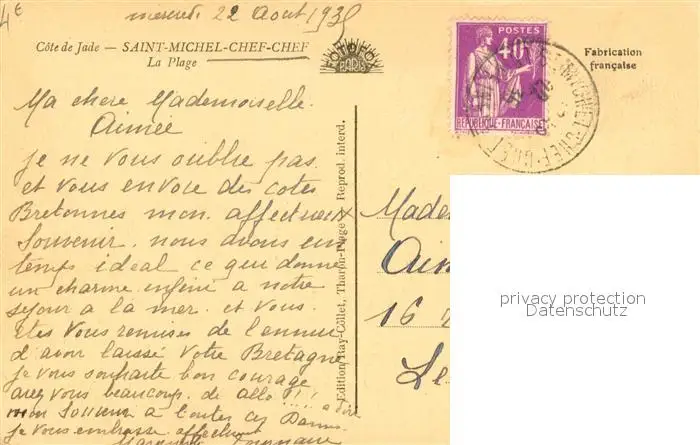 4€
mercredi 22 Aout 193
Côte de Jade — SAINT-MICHEL-CHEF-CHEF
La Plage
FOTOFOX
PARIS
POSTES
40c
REPUBLIQUE-FRANÇAISE
Fabrication
française
Ma chere Mademoiselle.
Aimée
Je ne vous oublie pas.
et vous envoie des cotes
Bretonnes mon affectueux
Souvenir. nous avons eu un
temps ideal ce qui donne
un charme infini a notre
sejour a la mer. et vous.
Etes vous remises de l'ennui
d'avoir laissé votre Bretagne
je vous souhaite bon courage
avez vous beaucoup de allo !!! a dire
mon Souvenir a toutes ces Dames
je vous embrasse affectueu
Edition Ray-Collet, Tharon-Plage Reprod. interd.
Made
Aim
16
Le
privacy protection
Datenschutz